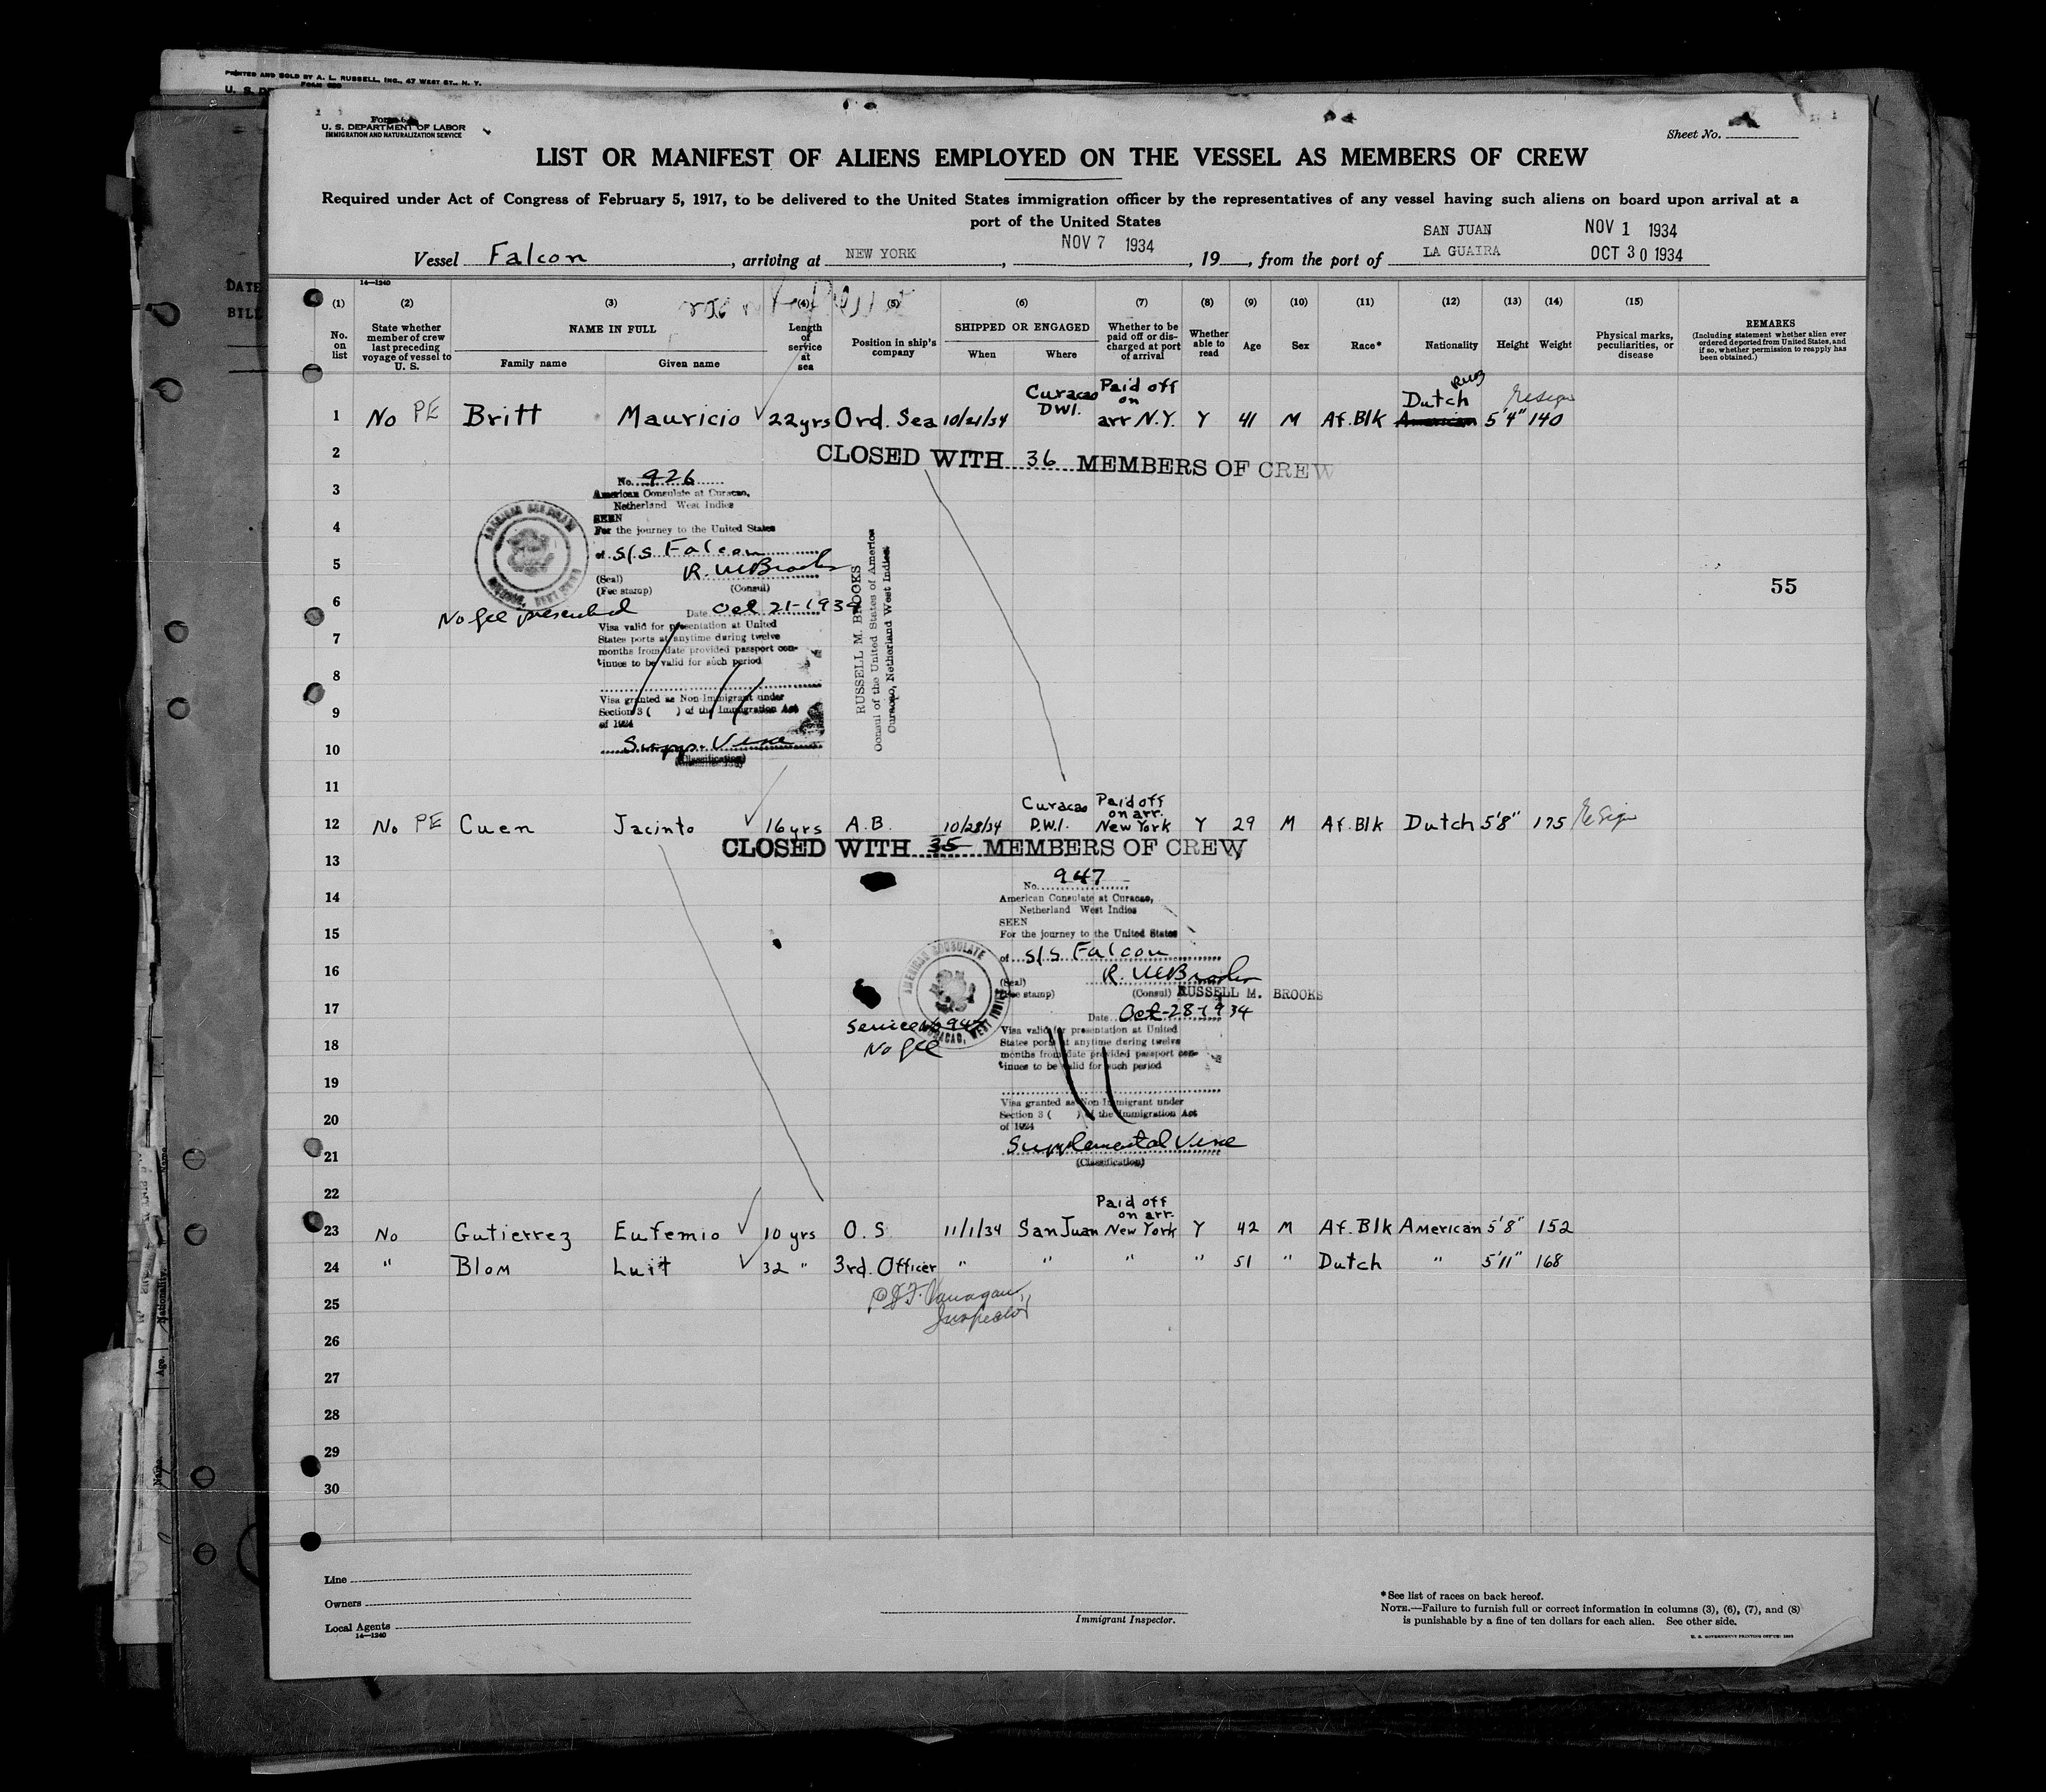 PRINTED AND SOLD BY A. L. RUSSELL, INC., 47 WEST ST., N. Y.
U. S. DEPARTMENT OF LABOR
IMMIGRATION AND NATURALIZATION SERVICE
Sheet No.
LIST OR MANIFEST OF ALIENS EMPLOYED ON THE VESSEL AS MEMBERS OF CREW
Required under Act of Congress of February 5, 1917, to be delivered to the United States immigration officer by the representatives of any vessel having such aliens on board upon arrival at a
port of the United States
SAN JUAN NOV 1 1934
Vessel Falcon, arriving at NEW YORK, NOV 7 1934, 19, from the port of LA GUAIRA OCT 30 1934
14—1240
(1) (2) (3) (4) (5) (6) (7) (8) (9) (10) (11) (12) (13) (14) (15)
No. on list
State whether member of crew last preceding voyage of vessel to U. S.
NAME IN FULL
Family name Given name
Length of service at sea
Position in ship's company
SHIPPED OR ENGAGED
When Where
Whether to be paid off or discharged at port of arrival
Whether able to read
Age
Sex
Race*
Nationality
Height
Weight
Physical marks, peculiarities, or disease
REMARKS
(Including statement whether alien ever ordered deported from United States, and if so, whether permission to reapply has been obtained.)
1 No PE Britt Mauricio 22 yrs Ord. Sea 10/21/34 Curacao DWI. Paid off on arr N.Y. Y 41 M Af. Blk Dutch American 5'4" 140
2 CLOSED WITH 36 MEMBERS OF CREW
3
4
5
6
7
8
9
10
11
No. 926
American Consulate at Curacao,
Netherland West Indies
SEEN
For the journey to the United States
of S/S Falcon
R. M Brooks
(Seal)
(Fee stamp) (Consul)
No fee presented
Date Oct 21-1934
Visa valid for presentation at United
States ports at anytime during twelve
months from date provided passport con-
tinues to be valid for such period
Visa granted as Non-Immigrant under
Section 3 ( ) of the Immigration Act
of 1924
Supp. Visa
(Classification)
RUSSELL M. BROOKS
Consul of the United States of America
Curacao, Netherland West Indies
55
12 No PE Cuen Jacinto 16 yrs A.B. 10/28/34 Curacao D.W.I. Paid off on arr. New York Y 29 M Af. Blk Dutch 5'8" 175
CLOSED WITH 35 MEMBERS OF CREW
13
14
15
16
17
18
19
20
21
22
No. 947
American Consulate at Curacao,
Netherland West Indies
SEEN
For the journey to the United States
of S/S Falcon
R. M Brooks
(Seal)
(Fee stamp) (Consul) RUSSELL M. BROOKS
Date Oct-28-1934
AMERICAN CONSULATE
CURACAO, WEST INDIES
Service No 947
No fee
Visa valid for presentation at United
States ports at anytime during twelve
months from date provided passport con-
tinues to be valid for such period
Visa granted as Non-Immigrant under
Section 3 ( ) of the Immigration Act
of 1924
Supplemental Visa
(Classification)
23 No Gutierrez Eufemio 10 yrs O.S 11/1/34 San Juan Paid off on arr. New York Y 42 M Af. Blk American 5'8" 152
24 " Blom Luit 32 " 3rd. Officer " " " " 51 " Dutch " 5'11" 168
25
Inspector
26
27
28
29
30
Line
Owners
Local Agents
14—1240
Immigrant Inspector.
*See list of races on back hereof.
NOTE.—Failure to furnish full or correct information in columns (3), (6), (7), and (8)
is punishable by a fine of ten dollars for each alien. See other side.